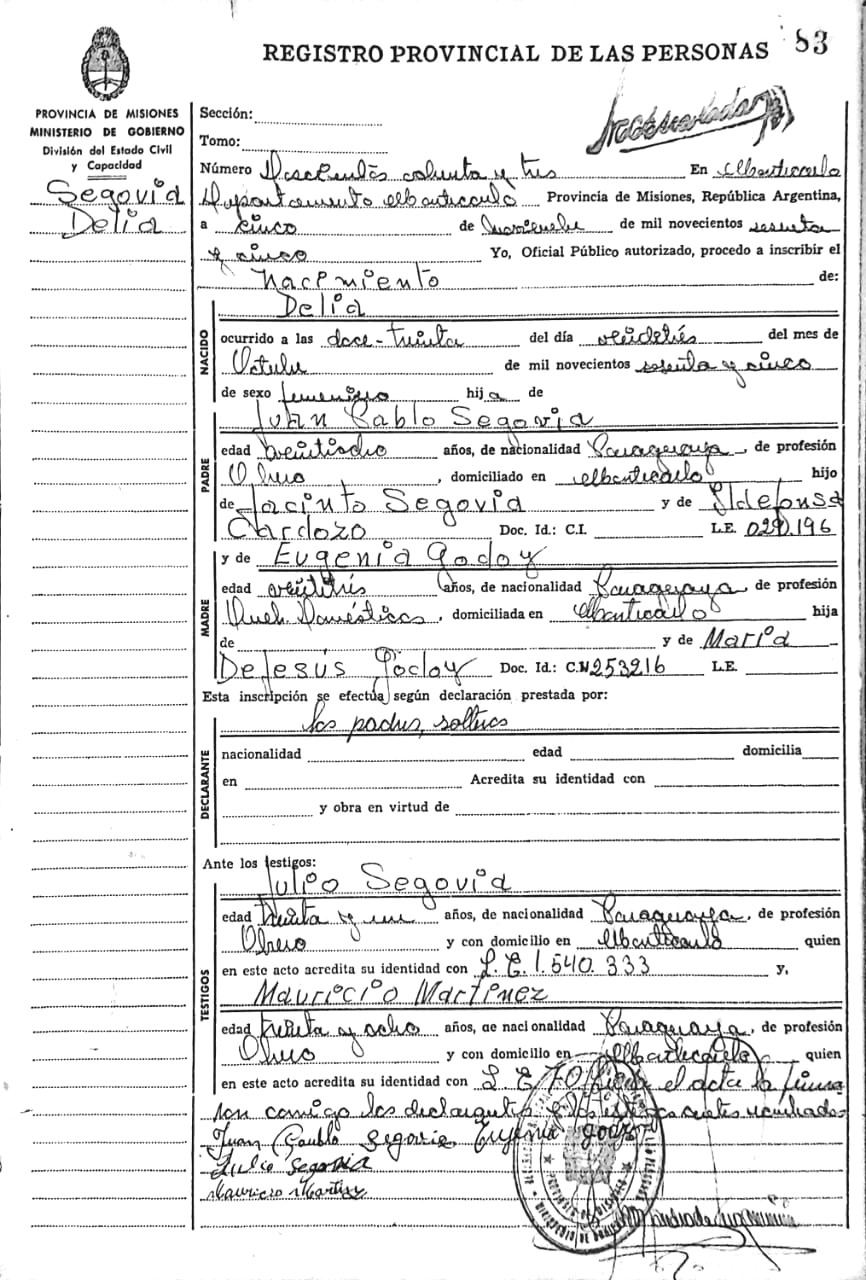 83
REGISTRO PROVINCIAL DE LAS PERSONAS
PROVINCIA DE MISIONES
MINISTERIO DE GOBIERNO
División del Estado Civil
y Capacidad
Segovia
Delia
Sección:
Tomo:
Número Doscientos ochenta y tres En Montecarlo
Departamento Montecarlo Provincia de Misiones, República Argentina,
a cinco de Noviembre de mil novecientos sesenta
y cinco Yo, Oficial Público autorizado, procedo a inscribir el
Nacimiento de:
Delia
NACIDO
ocurrido a las doce-treinta del día veintitrés del mes de
Octubre de mil novecientos sesenta y cinco
de sexo femenino hija de
Juan Pablo Segovia
PADRE
edad veintiocho años, de nacionalidad Paraguaya, de profesión
Obrero, domiciliado en Montecarlo hijo
de Jacinto Segovia y de Ildefonsa
Cardozo Doc. Id.: C.I. L.E.
y de Eugenia Godoy
MADRE
edad veintitrés años, de nacionalidad Paraguaya, de profesión
Queh. Domésticos, domiciliada en Montecarlo hija
de y de María
DeJesús Godoy Doc. Id.: 253216 L.E.
Esta inscripción se efectúa según declaración prestada por:
los padres, solteros
DECLARANTE
nacionalidad edad domicilia
en Acredita su identidad con
y obra en virtud de
Ante los testigos:
Julio Segovia
TESTIGOS
edad treinta y un años, de nacionalidad Paraguaya, de profesión
Obrero y con domicilio en Montecarlo quien
en este acto acredita su identidad con L.E. 1.540.333 y,
Mauricio Martinez
edad treinta y ocho años, de nacionalidad Paraguaya, de profesión
Obrero y con domicilio en Montecarlo quien
en este acto acredita su identidad con L.E. el acta la firma
son comigo los declarantes
Juan Pablo Segovia Eugenia Godoy
Julio Segovia
Mauricio Martinez